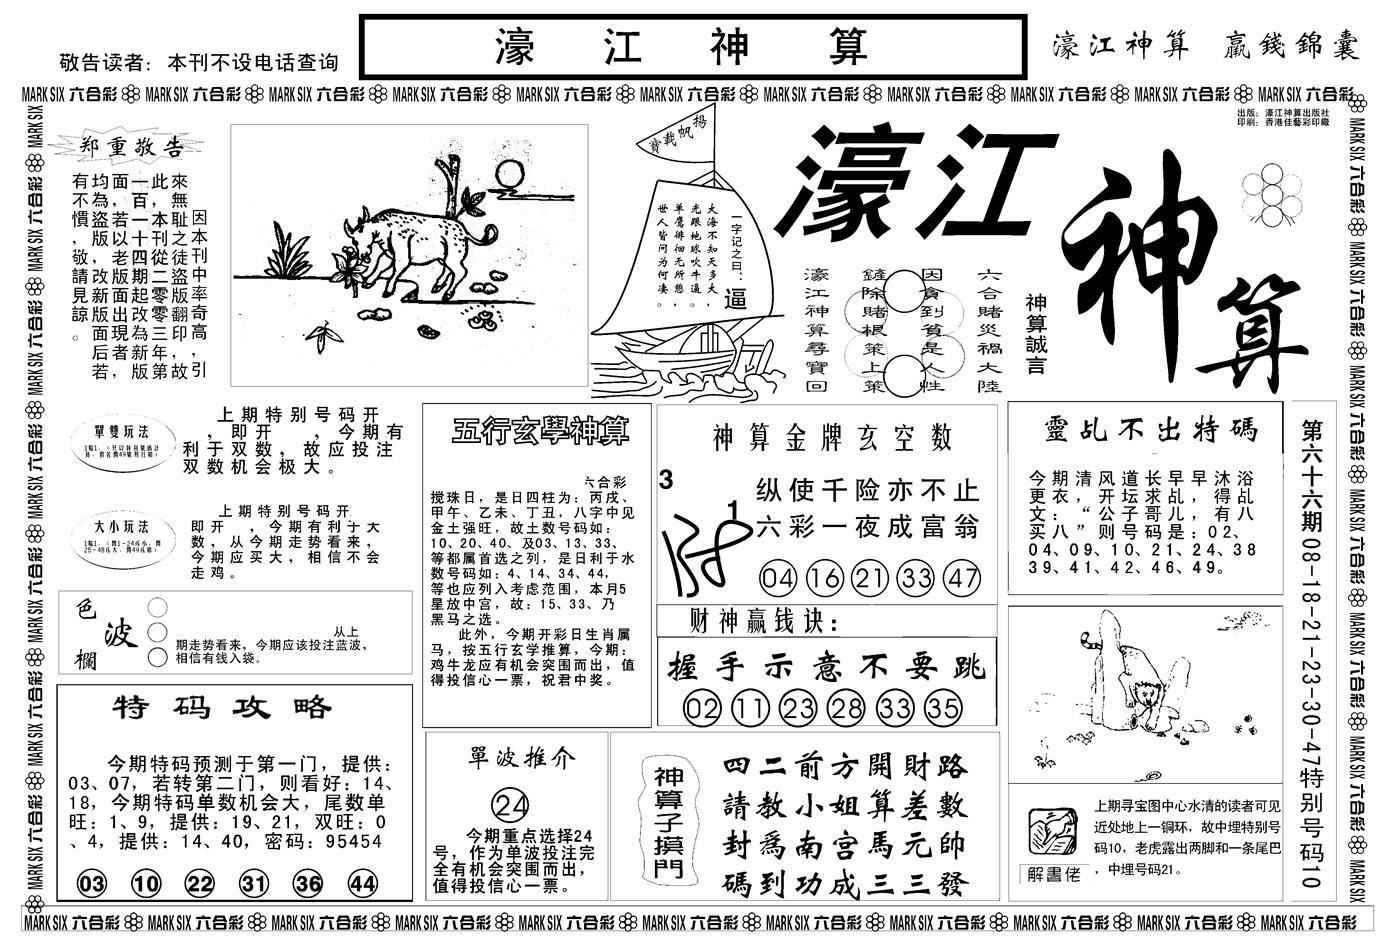 敬告读者：本刊不设电话查询
濠江神算
濠江神算 贏錢錦囊
MARK SIX 六合彩 MARK SIX 六合彩 MARK SIX 六合彩 MARK SIX 六合彩 MARK SIX 六合彩 MARK SIX 六合彩 MARK SIX 六合彩 MARK SIX 六合彩 MARK SIX 六合彩 MARK SIX 六合彩 MARK SIX 六合彩
出版：濠江神算出版社
印刷：香港佳藝彩印廠
郑重敬告
因本刊中率奇高，引
來無恥之徒盗版翻印，故
此，本刊從二零零三年第
一百一十四期起改為新版
面，若以老版面出現者，
均為盗版，敬請改新版面后若
有不慣，敬請見諒。
揚帆載寶
一字记之曰：逼
大海不知天多大，
光跟地球吹牛逼。
单鹰徘徊无所憩，
世人皆问为何凄。
濠江
神算
神算誠言
六合賭災禍大陸
因貪到貧是人性
鏟除賭根策上策
濠江神算尋寶回
單雙玩法
上期特别号码开
，即开 ，今期有
利于双数，故应投注
双数机会极大。
大小玩法
上期特别号码开
即开 ，今期有利于大
数，从今期走势看来，
今期应买大，相信不会
走鸡。
色波欄
从上
期走势看来，今期应该投注蓝波，
相信有钱入袋。
特码攻略
今期特码预测于第一门，提供：
03、07，若转第二门，则看好：14、
18，今期特码单数机会大，尾数单
旺：1、9，提供：19、21，双旺：0
、4，提供：14、40，密码：95454
03 10 22 31 36 44
五行玄學神算
六合彩
搅珠日，是日四柱为：丙戌、
甲午、乙未、丁丑，八字中见
金土强旺，故土数号码如：
10、20、40、及03、13、33、
等都属首选之列，是日利于水
数号码如：4、14、34、44，
等也应列入考虑范围，本月5
星放中宫，故：15、33、乃
黑马之选。
此外，今期开彩日生肖属
马，按五行玄学推算，今期：
鸡牛龙应有机会突围而出，值
得投信心一票，祝君中奖。
單波推介
24
今期重点选择24
号，作为单波投注完
全有机会突围而出，
值得投信心一票。
神算金牌玄空数
3
1
纵使千险亦不止
六彩一夜成富翁
04 16 21 33 47
财神赢钱诀：
握手示意不要跳
02 11 23 28 33 35
神算子摸門
四二前方開財路
請教小姐算差數
封爲南宫馬元帥
碼到功成三三發
靈乩不出特碼
今期清风道长早早沐浴
更衣，开坛求乩，得乩
文：“公子哥儿，有八
买八”则号码是：02、
04、09、10、21、24、38
39、41、42、46、49。
上期寻宝图中心水清的读者可见
近处地上一铜环，故中埋特别号
码10，老虎露出两脚和一条尾巴
，中埋号码21。
解書佬
第六十六期08-18-21-23-30-47特别号码10
MARK SIX 六合彩 MARK SIX 六合彩 MARK SIX 六合彩 MARK SIX 六合彩 MARK SIX 六合彩 MARK SIX 六合彩 MARK SIX 六合彩 MARK SIX 六合彩 MARK SIX 六合彩 MARK SIX 六合彩 MARK SIX 六合彩